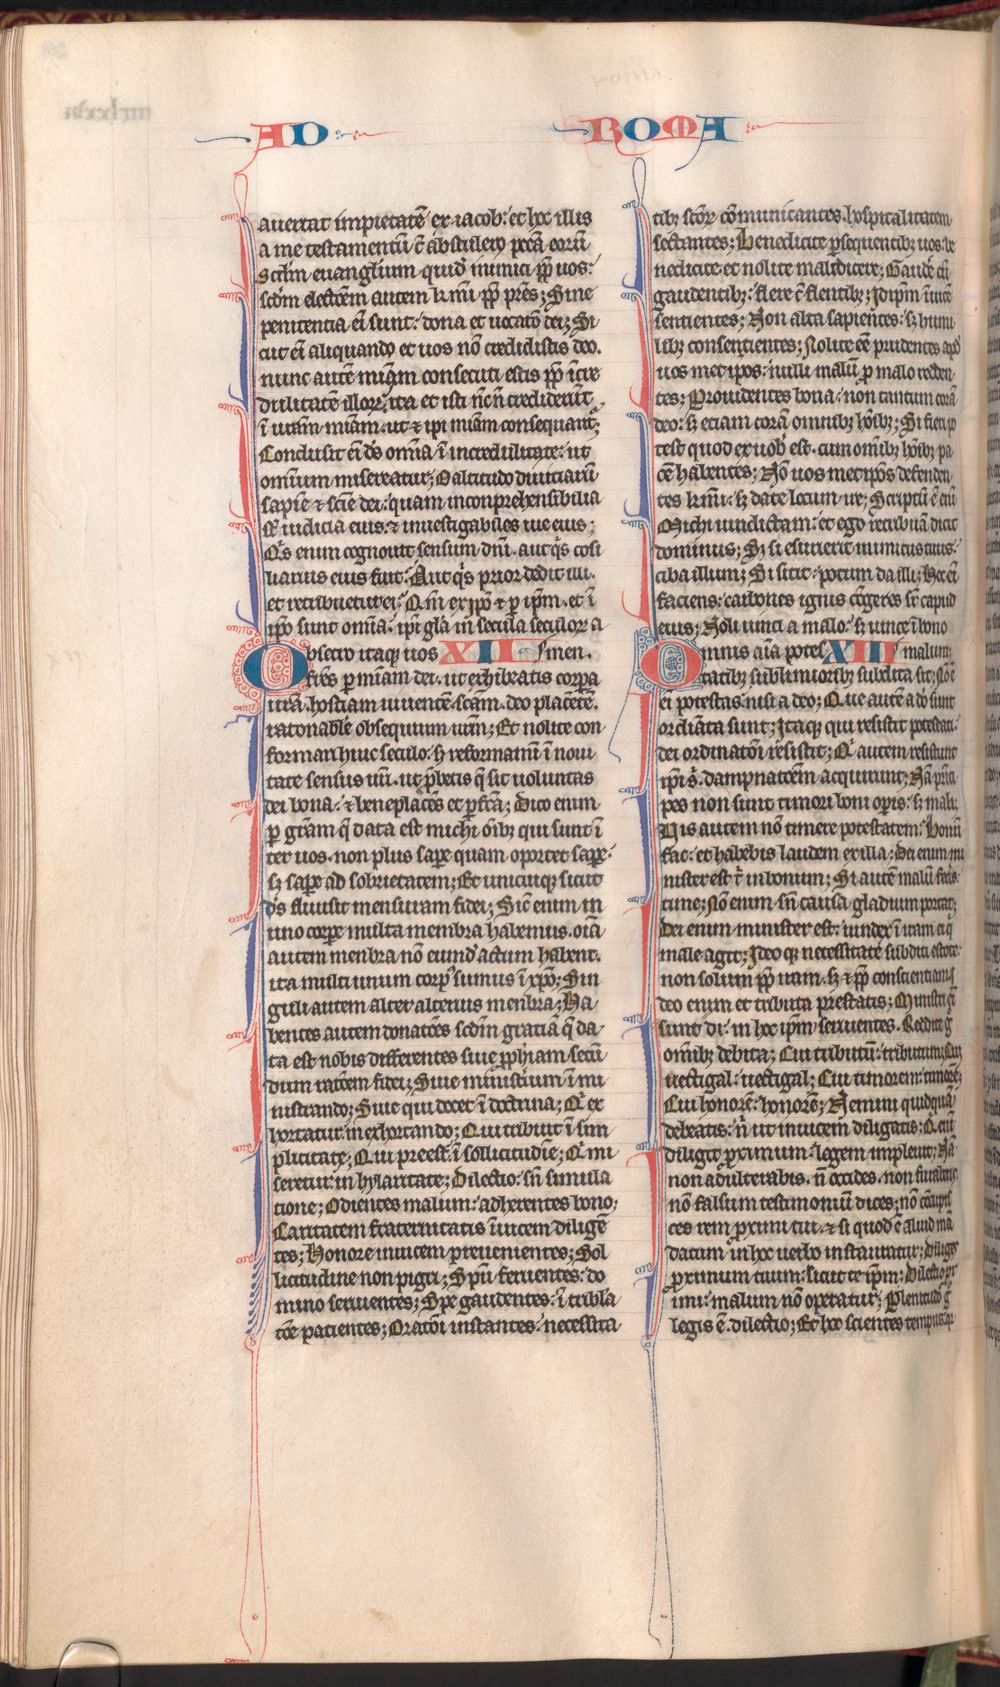 AD ROMA
auertat impietatē ex iacob. et hoc illis
a me testamentū c̄ abstulero pccā eorū
Scdm euangelium quid' inimici ꝓp̄ uos:
scdm electōem autem k̄mi ꝓp̄ pr̄es; Sine
penitentia ēi sunt. dona et uocatō dei; Si
cut ēi aliquando et uos nō credidistis deo.
nunc autē miam consecuti estis ꝓp̄ īcre
dulitatē illor. ita et isti nc̄ n̄ crediderūt
ī uram miam. ut ⁊ ipi miam consequant;
Conclusit ēi ds̄ omīa ī incredulitate. ut
omīum misereatur; O altitudo diuitiarū
sapiē ⁊ sciē dei. quam inconprehensibilia
sr̄ iudicia eius. ⁊ inuestigabiles uie eius;
Qis enim cognouit sensum dnī. aut qis cosi
liarius eius fuit. Aut qis prior dedit illi.
et retribuetur ei. Qm̄ ex ipo ⁊ ꝑ ipm̄. et ī
ipo sunt omīa. ipi glā in secula seculor a
bsecro itaqꝫ uos XII men.
frēs ꝑ miam dei. ut exhibeatis corpa
ura. hostiam uiuentē. scam. deo placētē.
rationabile obsequium urm̄; Et nolite con
formari huic seculo. sꝫ reformamī ī noui
tate sensus urī. ut ꝓbetis q̄ sit uoluntas
dei bona. ⁊ beneplacēs et ꝑfca; Dico enim
ꝑ grām q̄ data est michi oībꝫ qui sunt ī
ter uos. non plus sapē quam oportet sapē.
sꝫ sapē ad sobrietatem; Et unicuiqꝫ sicut
ds̄ diuisit mensuram fidei; Sic̄ enim in
uno corpe multa membra habemus. oīa
autem menbra nō eund' actum habent.
ita multi unum corpꝰ sumus ī xpō; Sin
guli autem alter alterius menbra; Ha
bentes autem donatōes scdm gratiā q̄ da
ta est nobis differentes siue ꝓphiam secū
dum ratōem fidei; Siue ministīium ī mi
nistrando; Siue qui docet ī doctrina; Qi ex
hortatur in exhortando; Qui tribuit ī sim
plicitate; Qui preest. ī sollicitudīe; Qi mi
seretur in hylaritate; Dilectio. sn̄ simula
tione; Odientes malum. adherentes bono;
Caritatem fraternitatis īuicem diligē
tes; Honore inuicem preuenientes; Sol
licitudine non pigri; Spū feruentes. do
mino seruientes; Spe gaudentes. ī tribla
tōe pacientes; Oratōi instantes. necessita
tibꝫ scōr cōmunicantes. hospitalitatem
sectantes; Benedicite ꝑsequentibꝫ uos. be
nedicite et nolite maledicere; Gaudē cū
gaudentibꝫ. flere c̄ flentibꝫ; Idipm̄ īuicē
sentientes; Non alta sapientes. sꝫ humi
libꝫ consentientes; Nolite ēē prudentes apd'
uos met ipos. nulli malū ꝑ malo redden
tes; Prouidentes bona. non tantum corā
deo. sꝫ etiam corā omnibꝫ hōibꝫ; Si fieri po
test quod ex uob' est. cum omībꝫ hōibꝫ pa
cē habentes; Nō uos met ipōs defenden
tes k̄mi. sꝫ date locum ire; Scriptū ē enī
Michi uindictam. et ego retribuā dicit
dominus; Sꝫ si esurierit inimicus tuus.
ciba illum; Si sitit. potum da illi; Hoc ēi
faciens. carbones ignis cōgeres sr̄ capud
eius; Noli uinci a malo. sꝫ uince ī bono
mnis aīa potes XIII malum
tatibꝫ sublimioribꝫ subdita sit; Nō ē
ēi potestas. nisi a deo; Que autē a do sunt
ordīata sunt; Itaqꝫ qui resistit potestati.
dei ordinatōi resistit; Qi autem resistunt
ipi s'. dampnatōem acquirunt; Nā prīci
pes non sunt timori boni opis. sꝫ mali.
Uis autem nō timere potestatem. Bonū
fac. et habebis laudem ex illa; Dei enim mi
nister est t' in bonum; Si autē malū fecis.
time; Nō enim sn̄ causa gladium portat;
Dei enim minister est. uindex ī iram ei q̄
male agit; Ideoqꝫ necessitate subditi estote
non solum ꝓp̄ iram. sꝫ ⁊ ꝓp̄ conscientiam;
deo enim et tributa prestatis; Ministri ēi
sunt di. in hoc ipm̄ seruientes. Reddite g'
omībꝫ debita; Cui tributū. tributum; Cui
uectigal. uectigal; Cui timorem. timorē;
Cui honorē. honorē; Nemini quidquā
debeatis. n̄ ut inuicem diligatis; Qi enī
diligit ꝓximum. legem impleuit; Nā
non adulterabis. n̄ occides. non furaberis.
nō falsum testimoniū dices; nō cōcupis
ces rem ꝓximi tui. ⁊ si quod ē aliud mā
datum. in hoc uerbo instauratur; diliges
ꝓximum tuum. sicut te ipm̄. Dilectio ꝓx
imi. malum nō operatur; Plenitudo g'
legis ē. dilectio; Et hoc scientes tempus. q̄